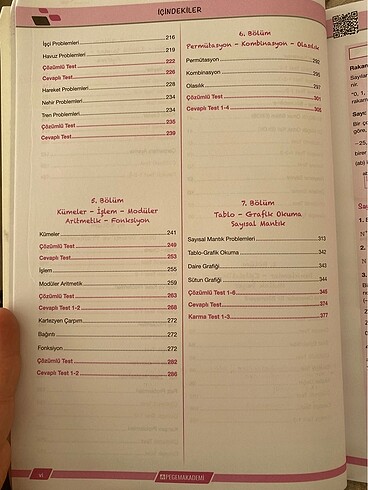 İÇİNDEKİLER
İşçi Problemleri 216
Havuz Problemleri 219
Çözümlü Test 222
Cevaplı Test 226
Hareket Problemleri 228
Nehir Problemleri 234
Tren Problemleri 234
Çözümlü Test 235
Cevaplı Test 239
5. Bölüm
Kümeler – İşlem – Modüler
Aritmetik – Fonksiyon
Kümeler 241
Çözümlü Test 249
Cevaplı Test 253
İşlem 255
Modüler Aritmetik 259
Çözümlü Test 263
Cevaplı Test 1-2 268
Kartezyen Çarpım 272
Bağıntı 272
Fonksiyon 272
Çözümlü Test 282
Cevaplı Test 1-2 286
6. Bölüm
Permütasyon – Kombinasyon – Olasılık
Permütasyon 292
Kombinasyon 295
Olasılık 297
Çözümlü Test 301
Cevaplı Test 1-4 305
7. Bölüm
Tablo – Grafik Okuma
Sayısal Mantık
Sayısal Mantık Problemleri 313
Tablo-Grafik Okuma 342
Daire Grafiği 343
Sütun Grafiği 344
Çözümlü Test 1-6 345
Cevaplı Test 374
Karma Test 1-3 377
vi
PEGEMAKADEMİ
Rakam
Sayılar
nir.
"0, 1,
Sayı:
-25,
birer
(ab) i